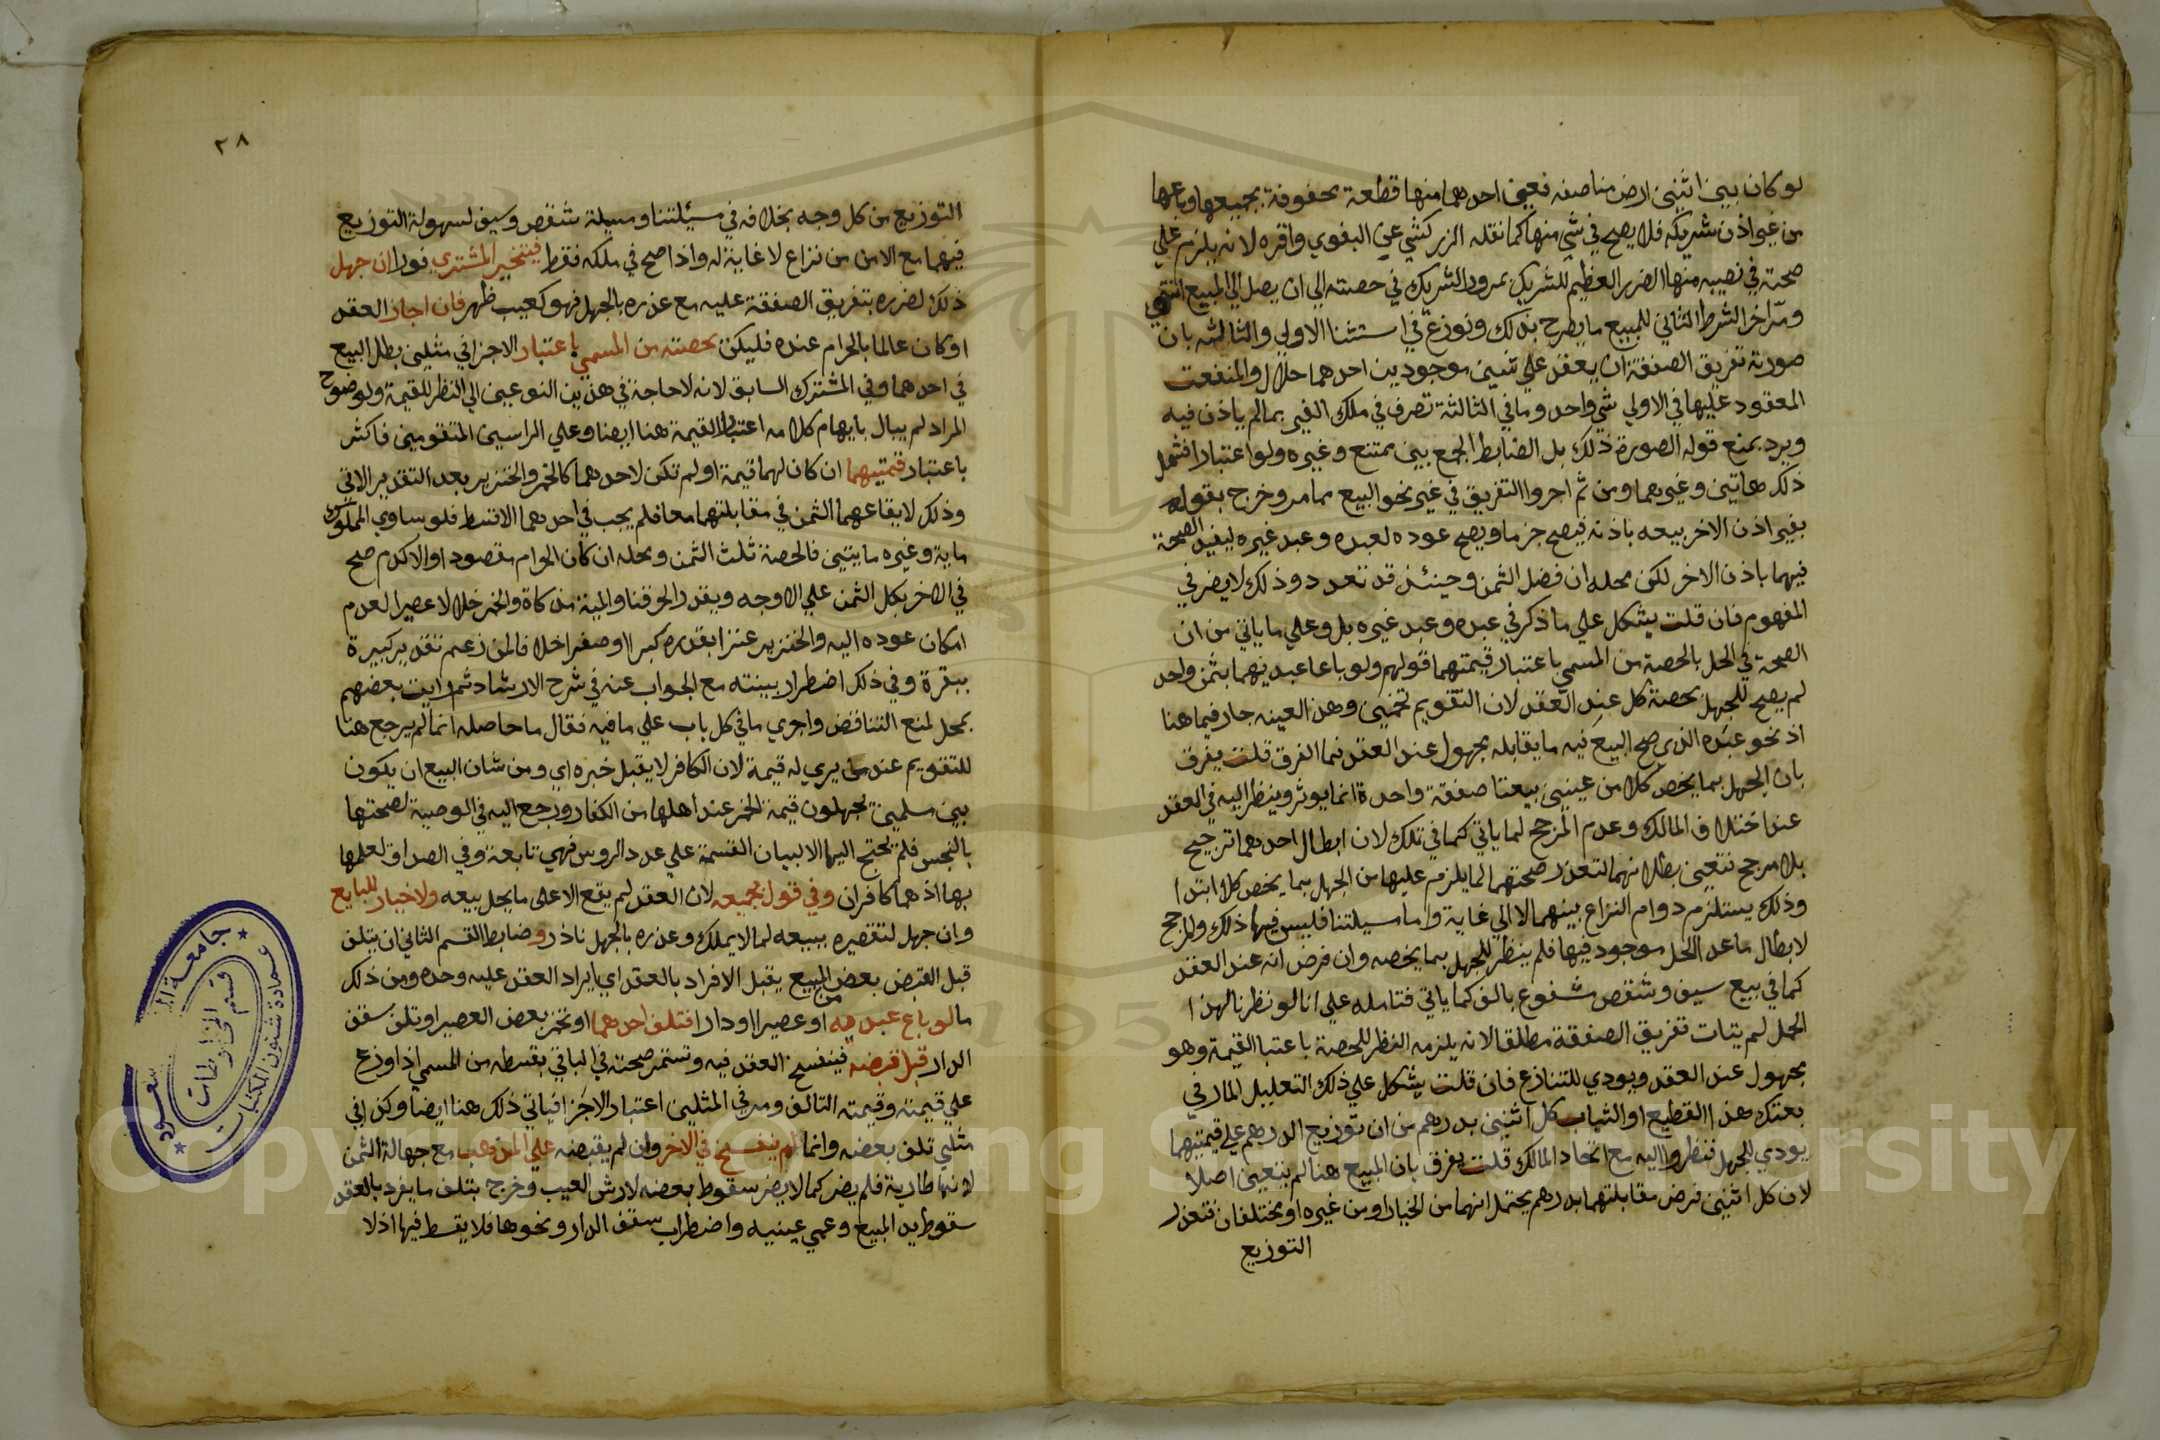 لو كان بين اثنين ارض مناصفه فعين احدهما منها قطعة محفوفة بجميعها وباعها
من غير اذن شريكه فلا يصح في شي منها كما نقله الزركشي عن البغوي واقره لانه يلزم علي
صحته في نصيبه منها الضرر العظيم للشريك بمرور الشريك في حصته الي ان يصل الي المبيع انتهي
ومر اخر الشرط الثاني للمبيع ما يصرح بذلك ونوزع في استثنا الاولي والثالثه بان
صورة تفريق الصفقة ان يعقد علي شيين موجودين احدهما حلال والمنفعت
المعقود عليها في الاولي شي واحد وما في الثالثة تصرف في ملك الغير بما لم ياذن فيه
ويرد بمنع قوله الصورة ذلك بل الضابط الجمع بين ممتنع وغيره ولو اعتبارا فشمل
ذلك هاتين وغيرهما ومن ثم اجروا التفريق في غير نحو البيع مما مر وخرج بقوله
بغير اذن الاخر بيعه باذنه فيصح جزما ويصح عوده لعبده وعبد غيره ليفيد الصحة
فيهما باذن الاخر لكن محله ان فصل الثمن وحينئذ قد تعدد وذلك لا يضر في
المفهوم فان قلت يشكل علي ما ذكر في عبده وعبد غيره بل وعلي ما ياتي من ان
الصحة في الحل بالحصة من المسمي باعتبار قيمتهما قولهم ولو باعا عبديهما بثمن واحد
لم يصح للجهل بحصة كل عند العقد لان التقويم تخمين وهذا لعينه جار فيما هنا
اذ نحو عبده الذي صح البيع فيه ما يقابله مجهول عند العقد فما الفرق قلت يفرق
بان الجهل بما يخص كلا من عينين بيعتا صفقة واحدة انما يوثر وينظر اليه في العقد
عند اختلاف المالك وعدم المرجح لما ياتي كما في تلك لان ابطال احدهما ترجيح
بلا مرجح فتعين بطلانهما لتعذر صحتهما لما يلزم عليها من الجهل بما يخص كلا ابتدا
وذلك يستلزم دوام النزاع بينهما لا الي غاية واما مسيلتنا فليس فيها ذلك والمرجح
لابطال ما عدا الحل موجود فيها فلم ينظر للجهل بما يخصه وان فرض انه عند العقد
كما في بيع سيف وشقص مشفوع بالف كما ياتي فتامله علي انا لو نظرنا لهذا
الجهل لم يتات تفريق الصفقة مطلقا لانه يلزمه النظر للحصة باعتبا القيمة وهو
مجهول عند العقد ويودي للتنازع فان قلت يشكل علي ذلك التعليل المار في
بعتك هذا القطيع او الثياب كل اثنين بدرهم من ان توزيع الدرهم علي قيمتيهما
يودي للجهل فنظروا اليه مع اتحاد المالك قلت يفرق بان المبيع هنا لم يتعين اصلا
لان كل اثنين فرض مقابلتهما بدرهم يحتمل انهما من الخيار او من غيره او مختلفان فتعذر
التوزيع
٣٨
التوزيع من كل وجه بخلافه في مسئلتنا ومسيلة شقص وسيف لسهولة التوزيع
فيهما مع الامن من نزاع لا غاية له واذا صح في ملكه فقط فيتخير المشتري فورا ان جهل
ذلك لضرره بتفريق الصفقة عليه مع عذره بالجهل فهو كعيب ظهر فان اجاز العقد
او كان عالما بالحرام عنده فليكن بحصته من المسمي باعتبار الاجزا في مثليين بطل البيع
في احدهما وفي المشترك السابق لانه لا حاجة في هذين النوعين الي النظر للقيمة ولوضوح
المراد لم يبال بايهام كلامه اعتبار القيمة هنا ايضا وعلي الراسين المتقومين فاكثر
باعتبار قيمتيهما ان كان لهما قيمة او لم تكن لاحدهما كالخمر والخنزير بعد التقدير الاتي
وذلك لايقاعهما الثمن في مقابلتهما معا فلم يجب في احدهما الا قسطه فلو ساوي المملوك
ماية وغيره مايتين فالحصة ثلث الثمن ومحله ان كان الحرام مقصودا والا كدم صح
في الاخر بكل الثمن علي الاوجه ويقدر الحر قنا والميتة مذكاة والخمر خلا لا عصيرا لعدم
امكان عوده اليه والخنزير عنزا بقدره كبرا وصغرا خلافا لمن زعم تقدير كبيرة
ببقرة وفي ذلك اضطراب بينته مع الجواب عنه في شرح الارشاد ثم رايت بعضهم
بمحل لمنع التناقض واجري ما في كل باب علي ما فيه فقال ما حاصله انما لم يرجع هنا
للتقويم عند من يري له قيمة لان الكافر لا يقبل خبره اي ومن شان البيع ان يكون
بين مسلمين يجهلون قيمة الخمر عند اهلها من الكفار ورجع اليه في الوصية لصحتها
بالنجس فلم يحتج اليها الا لبيان القسمة علي عدد الروس فهي تابعة وفي الصداق لعلمها
بها اذ هما كافران وفي قول بجميعه لان العقد لم يقع الا علي ما يحل بيعه ولا خيار للبايع
وان جهل لتقصيره ببيعه لما لا يملك وعذره بالجهل نادر وضابط القسم الثاني ان يتلف
قبل القبض بعض المبيع يقبل الافراد بالعقد اي ايراد العقد عليه وحده ومن ذلك
ما لو باع عبديه او عصيرا او دارا فتلف احدهما او تخمر بعض العصير او تلف سقف
الدار قبل قبضه فينفسخ العقد فيه وتستمر صحته في الباقي بقسطه من المسمي اذا وزع
علي قيمته وقيمة التالف ومر في المثليين اعتبار الاجزا فياتي ذلك هنا ايضا وكذا في
مثلي تلف بعضه وانما لم ينفسخ في الاخر وان لم يقبضه علي المذهب مع جهالة الثمن
لانها طارية فلم يضر كما لا يضر سقوط بعضه لارش العيب وخرج بتلف ما يفرد بالعقد
سقوط يد المبيع وعمي عينيه واضطراب سقف الدار ونحوها فلا يقسط فيها اذ لا
جامعة الـ سعود
عمادة شئون المكتبات
قسم المخطوطات
Copyright © King Saud University
1957